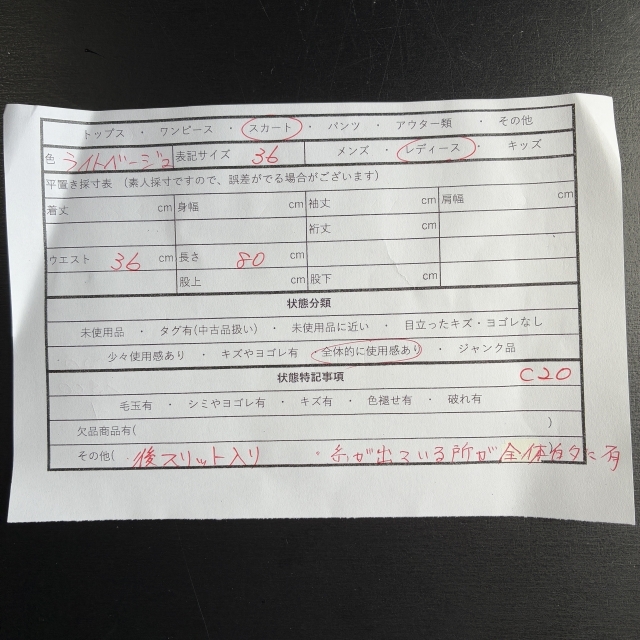 トップス ・ ワンピース ・ スカート ・ パンツ ・ アウター類 ・ その他
色 ライトベージュ 表記サイズ 36 メンズ ・ レディース ・ キッズ
平置き採寸表 (素人採寸ですので、誤差がでる場合がございます)
着丈 cm 身幅 cm 袖丈 cm 肩幅 cm
裄丈 cm
ウエスト 36 cm 長さ 80 cm
股上 cm 股下 cm
状態分類
未使用品 ・ タグ有(中古品扱い) ・ 未使用品に近い ・ 目立ったキズ・ヨゴレなし
少々使用感あり ・ キズやヨゴレ有 ・ 全体的に使用感あり ・ ジャンク品
状態特記事項 C20
毛玉有 ・ シミやヨゴレ有 ・ キズ有 ・ 色褪せ有 ・ 破れ有
欠品商品有( )
その他( ・後スリット入り ・糸が出ている所が全体的に有 )